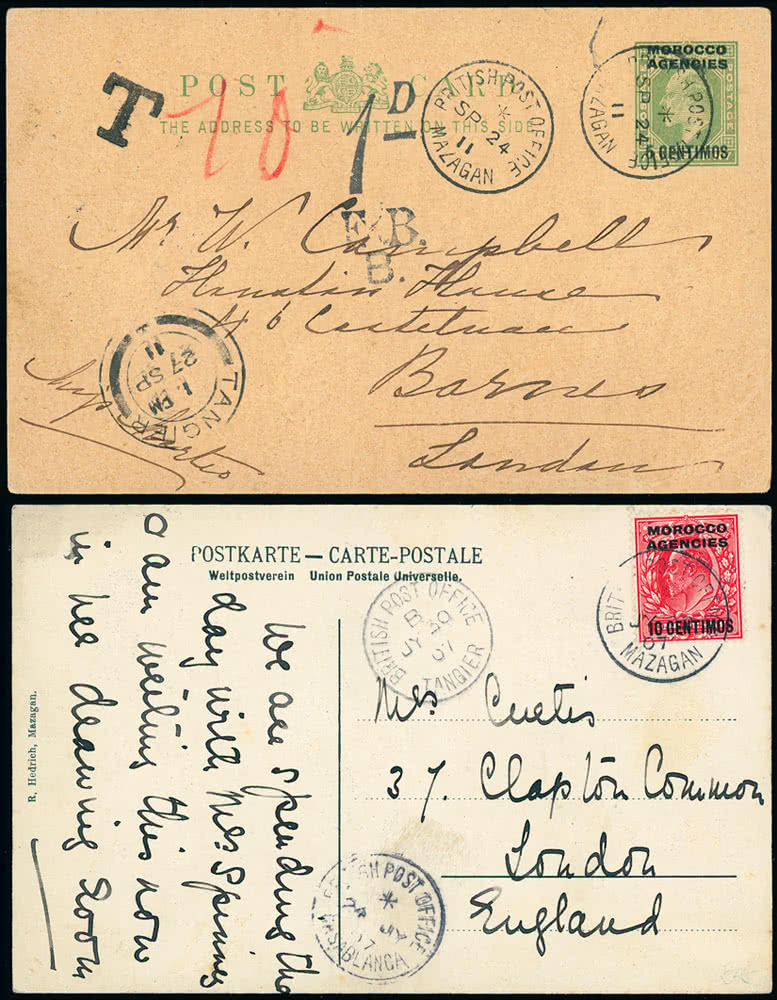 POST CARD
THE ADDRESS TO BE WRITTEN ON THIS SIDE
MOROCCO
AGENCIES
POSTAGE
5 CENTIMOS
T
10
1D
BRITISH POST OFFICE
*
SP 24
11
MAZAGAN
BRITISH POST OFFICE
*
SP 24
11
MAZAGAN
F.B.
B.
Mr W. Campbell
House
46 Castelnau
Barnes
London
TANGIER
1 PM
27 SP
11
POSTKARTE — CARTE-POSTALE
Weltpostverein Union Postale Universelle.
MOROCCO
AGENCIES
10 CENTIMOS
BRITISH POST OFFICE
JY
07
MAZAGAN
BRITISH POST OFFICE
B
JY 07
TANGIER
We are spending the
day with Mrs Spinney
& am writing this now
in her drawing room
Mrs Curtis
37. Clapton Common
London
England
BRITISH POST OFFICE
*
JY
07
CASABLANCA
R. Hedrich, Mazagan.